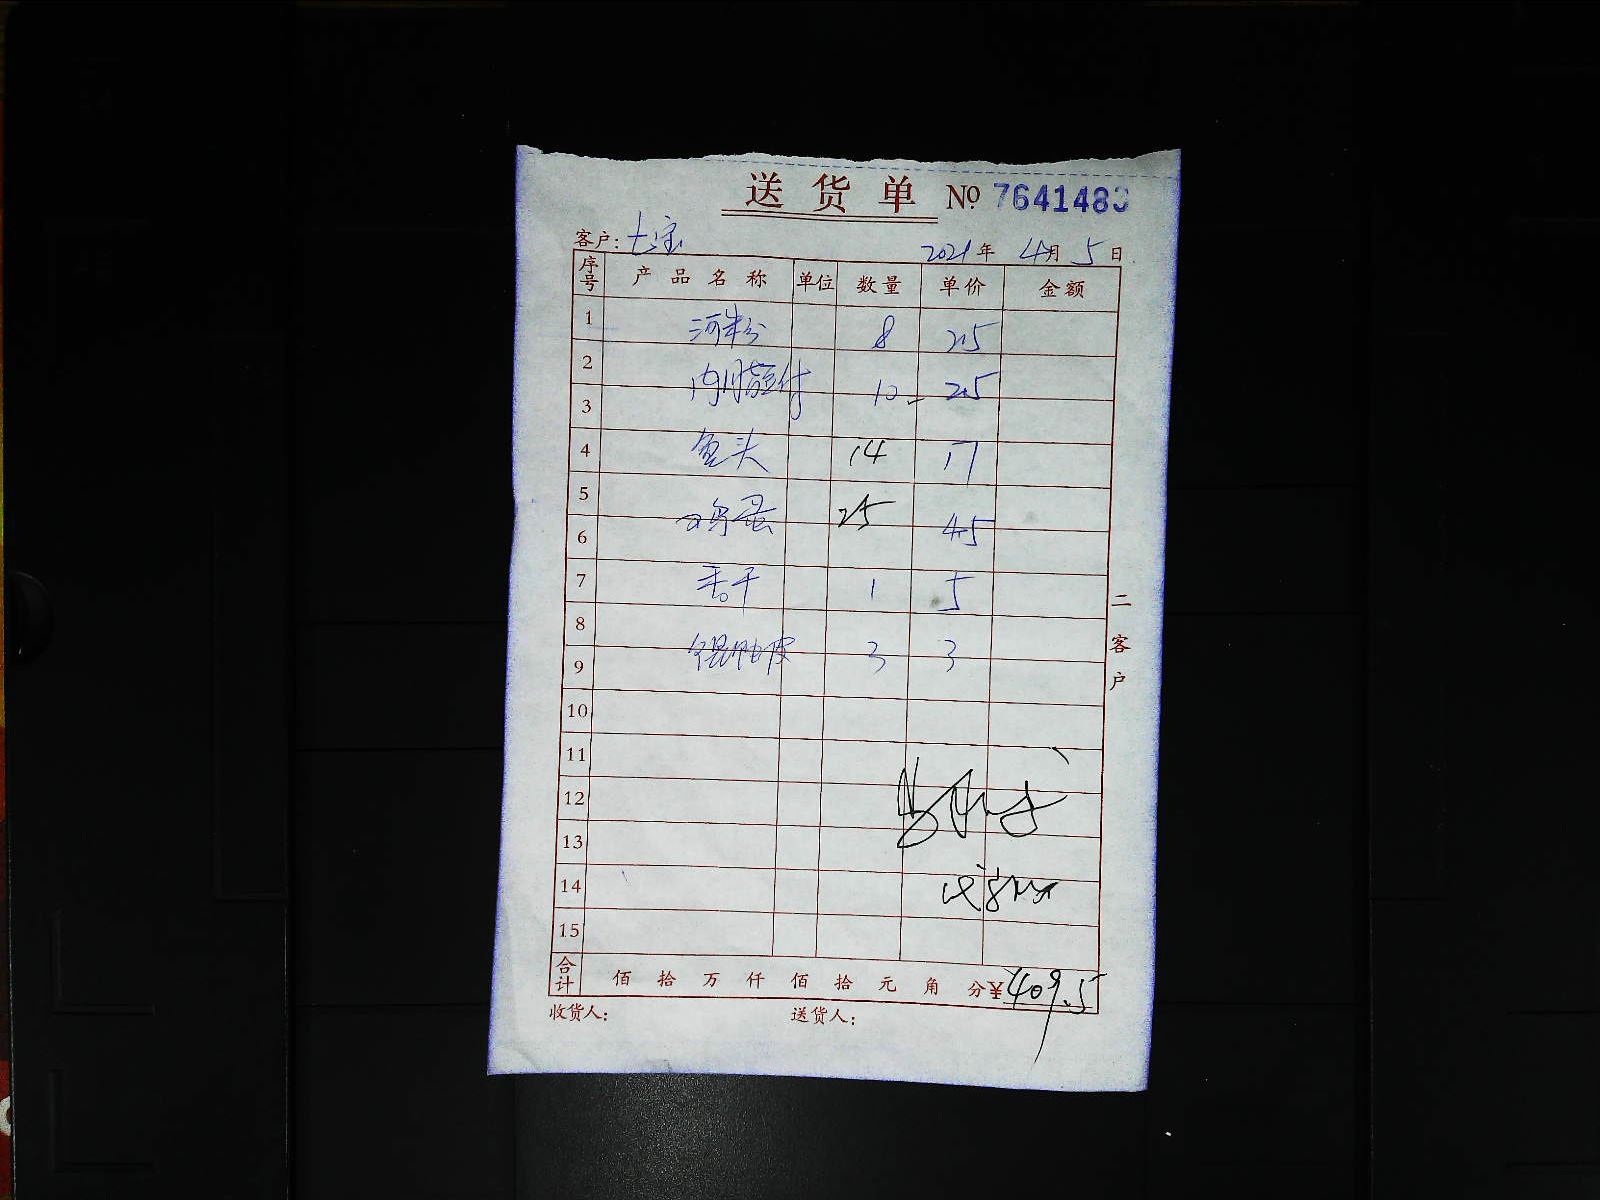 送货单 № 7641483
客户: 七宝 2021年 4月 5日
序号 产品名称 单位 数量 单价 金额
1 河粉 8 2.5
2 内脂豆付 10 2.5
3
4 鱼头 14 17
5 鸡蛋 25 4.5
6
7 香干 1 5
8 馄饨皮 3 3
9
10
11
12
13
14
15
合计 佰 拾 万 仟 佰 拾 元 角 分 ¥409.5
收货人: 送货人:
二客户